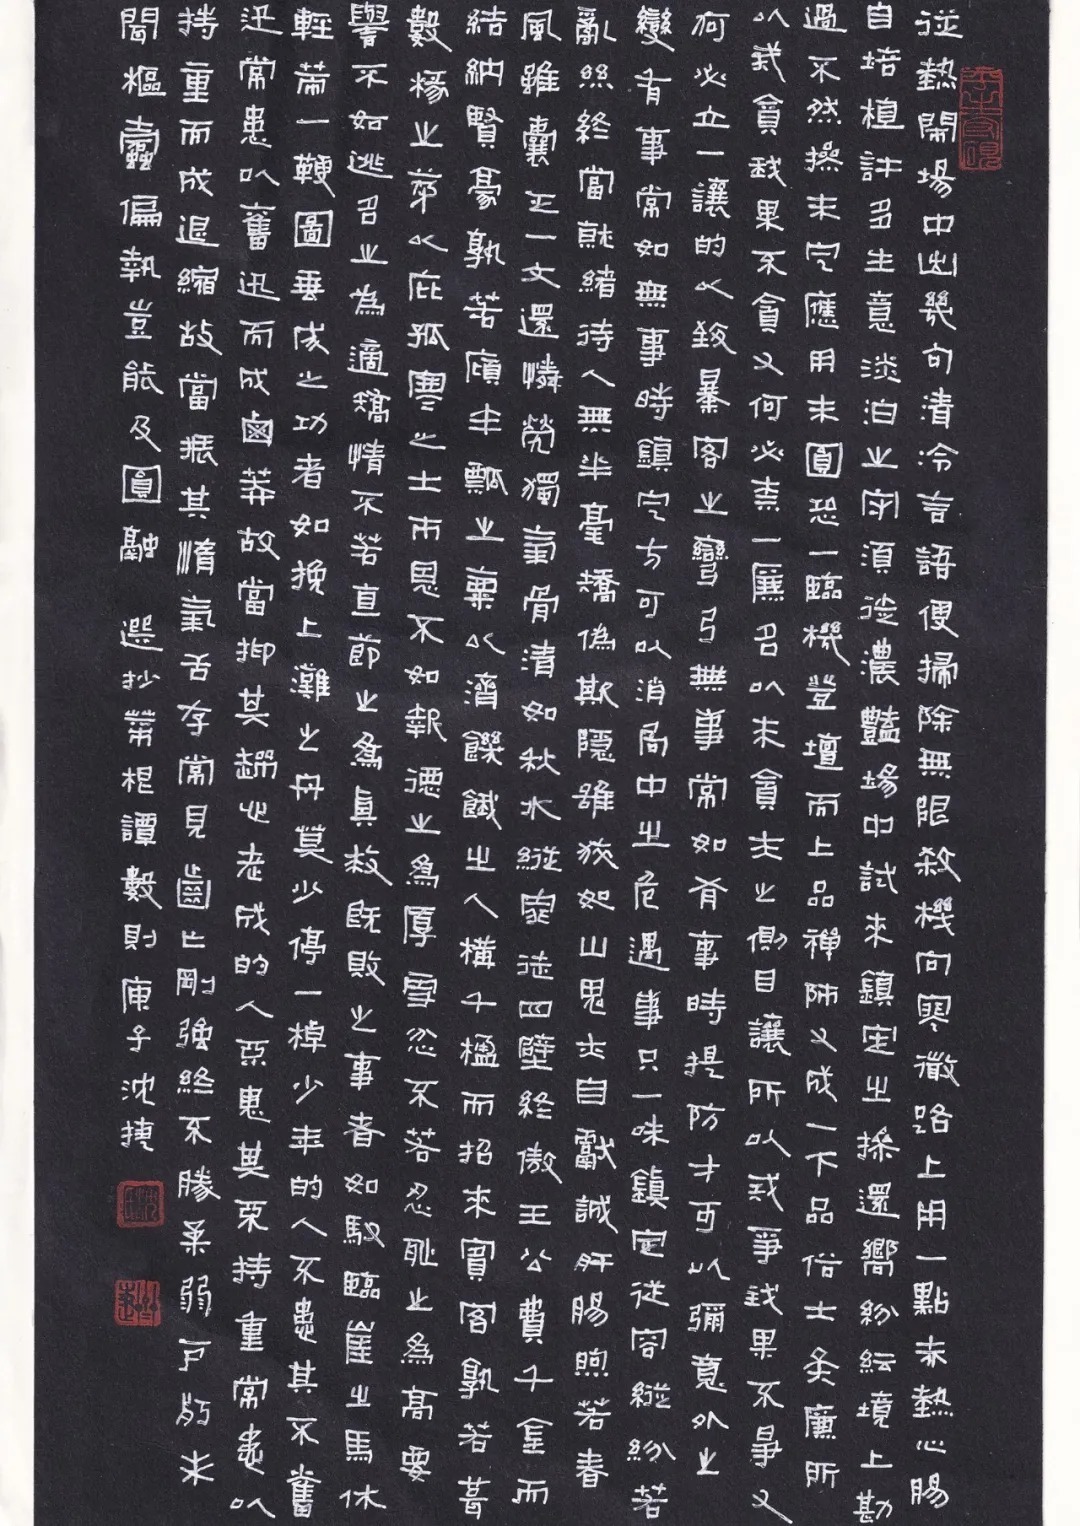 從熱鬧場中出幾句清冷言語便掃除無限殺機向寒微路上用一點赤熱心腸
自培植許多生意淡泊之守須從濃豔場中試來鎮定之操還嚮紛紜境上勘
過不然操未定應用未圓恐一臨機登壇而上品禪師又成一下品俗士矣廉所
以戒貪我果不貪又何必標一廉名以來貪夫之側目讓所以戒爭我果不爭又
何必立一讓的以致暴客之彎弓無事常如有事時提防才可以彌意外之
變有事常如無事時鎮定方可以消局中之危遇事只一味鎮定從容縱紛若
亂絲終當就緒待人無半毫矯偽欺隱雖狡如山鬼亦自獻誠肝腸煦若春
風雖囊乏一文還憐煢獨氣骨清如秋水縱家徒四壁終傲王公費千金而
結納賢豪孰若傾半瓢之粟以濟饑餓之人構千楹而招來賓客孰若葺
數椽之茅以庇孤寒之士市恩不如報德之為厚雪忿不若忍恥之為高要
譽不如逃名之為適矯情不若直節之為真救既敗之事者如馭臨崖之馬休
輕策一鞭圖垂成之功者如挽上灘之舟莫少停一棹少年的人不患其不奮
迅常患以奮迅而成鹵莽故當抑其躁心老成的人不患其不持重常患以
持重而成退縮故當振其惰氣舌存常見齒亡剛強終不勝柔弱戶朽未
聞樞蠹偏執豈能及圓融 選抄菜根譚數則庚子沈捷